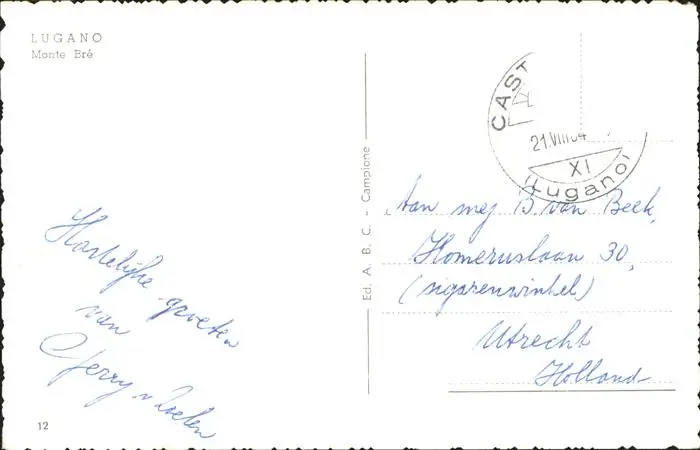 LUGANO
Monte Bré
Hartelijke groeten
van
Gerry v
12
Ed. A. B. C. - Campione
CAST
21.VIII
XI
(Lugano)
Aan mej B. van Beek,
Homeruslaan 30,
(sigarenwinkel)
Utrecht
Holland